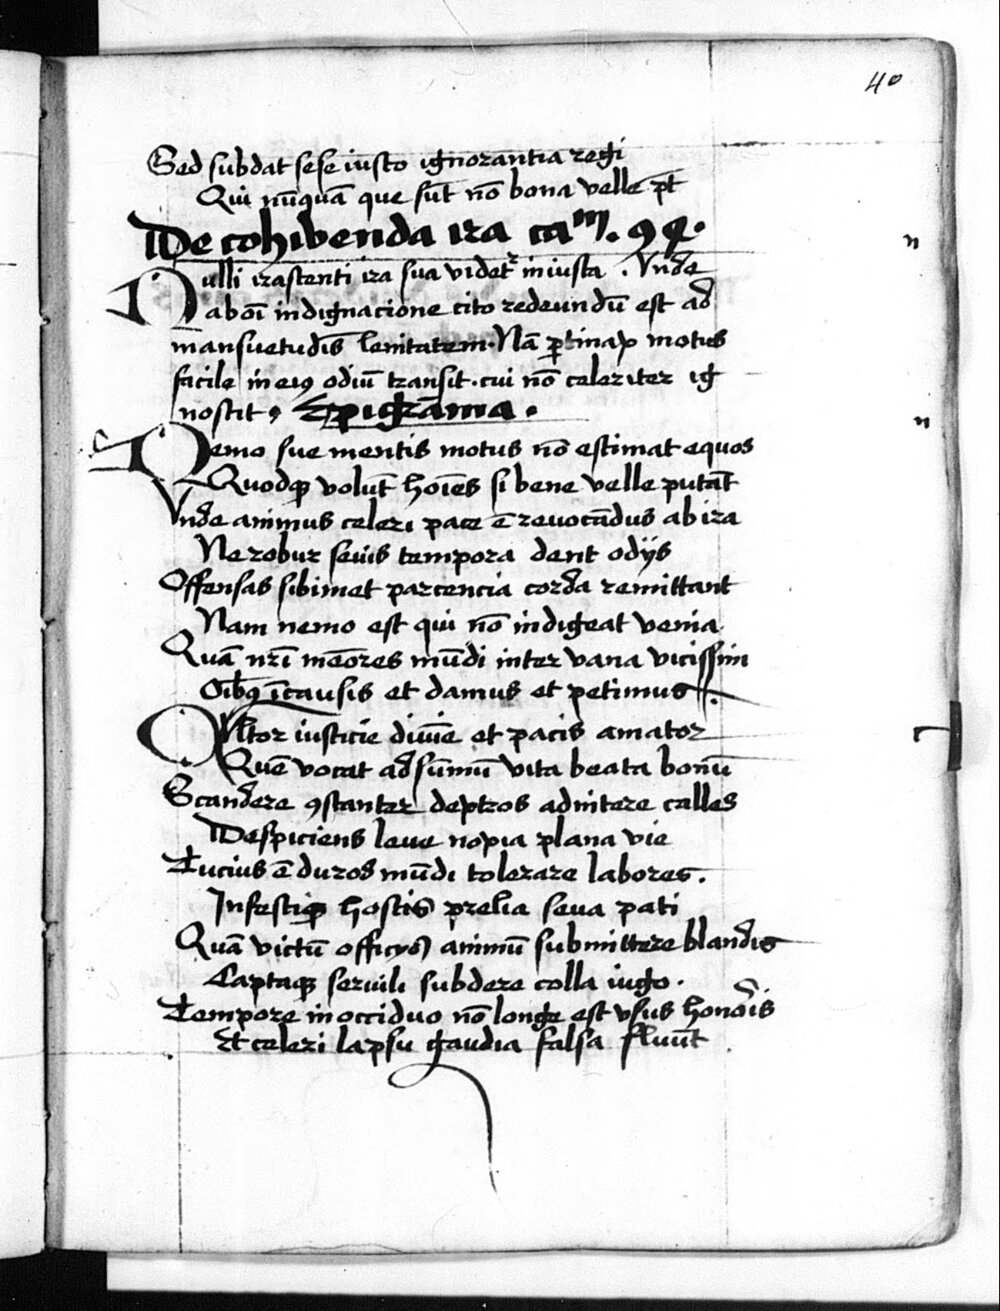 40
Sed subdat sese iusto ignorantia regi
Qui nūquā que sūt nō bona velle pt̄
De cohibenda ira caᵐ. 94.
n
Nulli irascenti ira sua videtʳ iniusta . Vnde
ab oī indignacione cito redeundū est ad
mansuetudīs lenitatem. Nā ꝑtinax motus
facile in eiꝰ odiū transit. cui nō celeriter ig
noscit. Epigrāma.
n
Nemo sue mentis motus nō estimat equos
Quodqꝫ volūt hoīes si bene velle putāt
Vnde animus celeri pace ē revocādus ab ira
Ne robur sevis tempora dent odijs
Offensas sibimet parcencia corda remittant
Nam nemo est qui nō indigeat venia
Quā nr̄i memores mūdi inter vana vicissim
Oībꝰ ī causis et damus et petimus.
Vltor iusticie divīe et pacis amator
Quē vocat ad sūmū vita beata bonū
Scandere ꝯstanter dextros adnitere calles
Despiciens leve nopia plana vie
Tucius ē duros mūdi tolerare labores.
Infestiqꝫ hostis prelia seva pati
Quā victū officijs animū submittere blandis
Captaqꝫ servili subdere colla iugo.
Tempore in occiduo nō longe est vsus honoris
Et celeri lapsu gaudia falsa fluūt